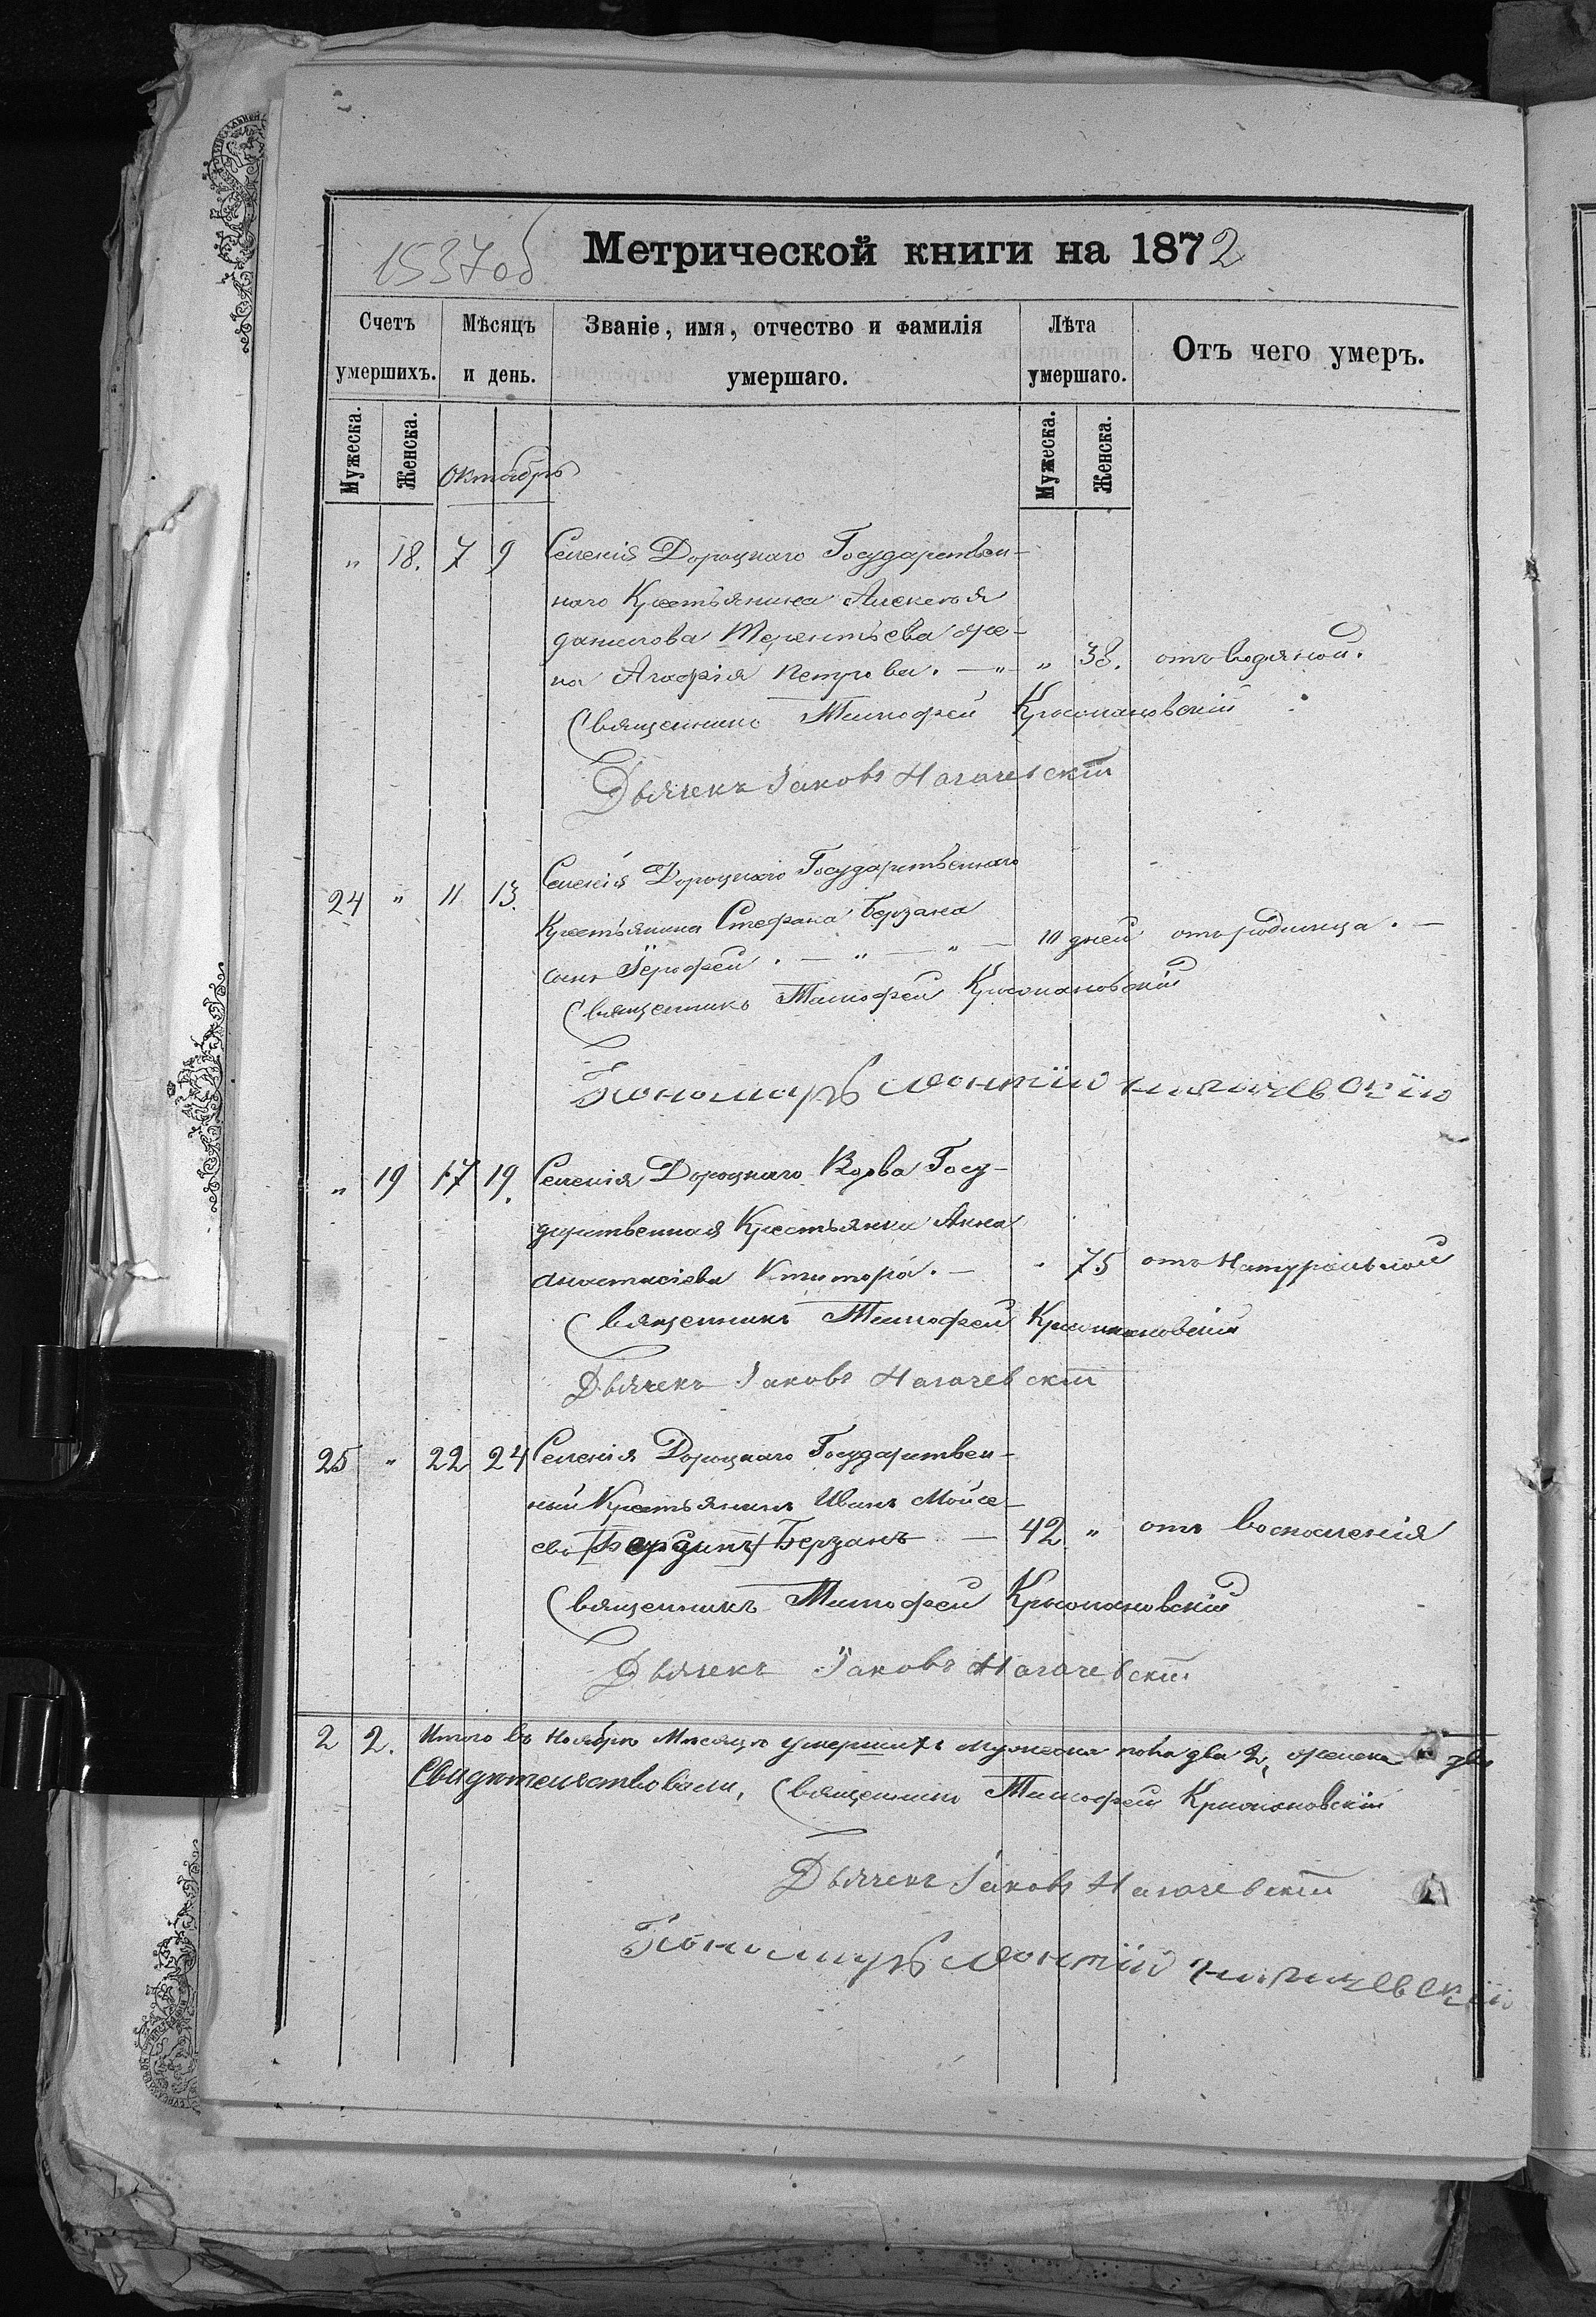 1537об Метрической книги на 1872
Счетъ умершихъ. Мѣсяцъ и день. Званіе, имя, отчество и фамилія умершаго. Лѣта умершаго. Отъ чего умеръ.
Мужеска. Женска. Октябрь Мужеска. Женска.
" 18. 7 9 Селенія Дороцкаго Государствен-
наго Крестьянина Алексея
данилова Терентьева же-
на Агафія Петрова. — " — " 38. отъ водяной.
Священникъ Тимофей
Дьячекъ Іаковъ Нагачевскій
24 " 11 13. Селенія Дороцкаго Государственнаго
Крестьянина Стефана Берзана
сынъ Іерофей. — " — " — 10 дней отъ родимца. —
Священникъ Тимофей
Пономарь Леонтій Нагачевскій
" 19 17 19. Селенія Дороцкаго Вдова Госу-
дарственная Крестьянка Анна
Анастасіева Ктитора. — " 75 отъ Натуральной
Священникъ Тимофей
Дьячекъ Іаковъ Нагачевскій
25 " 22 24 Селенія Дороцкаго Государствен-
ный Крестьянинъ Иванъ Мойсе-
евъ Берзанъ — 42 " отъ воспаленія
Священникъ Тимофей
Дьячекъ Іаковъ Нагачевскій
2 2. Итого въ Ноябрѣ Мѣсяцѣ умершихъ мужеска пола два 2, женска две
Свидѣтельствовали, Священникъ Тимофей
Дьячекъ Іаковъ Нагачевскій
Пономарь Леонтій Нагачевскій